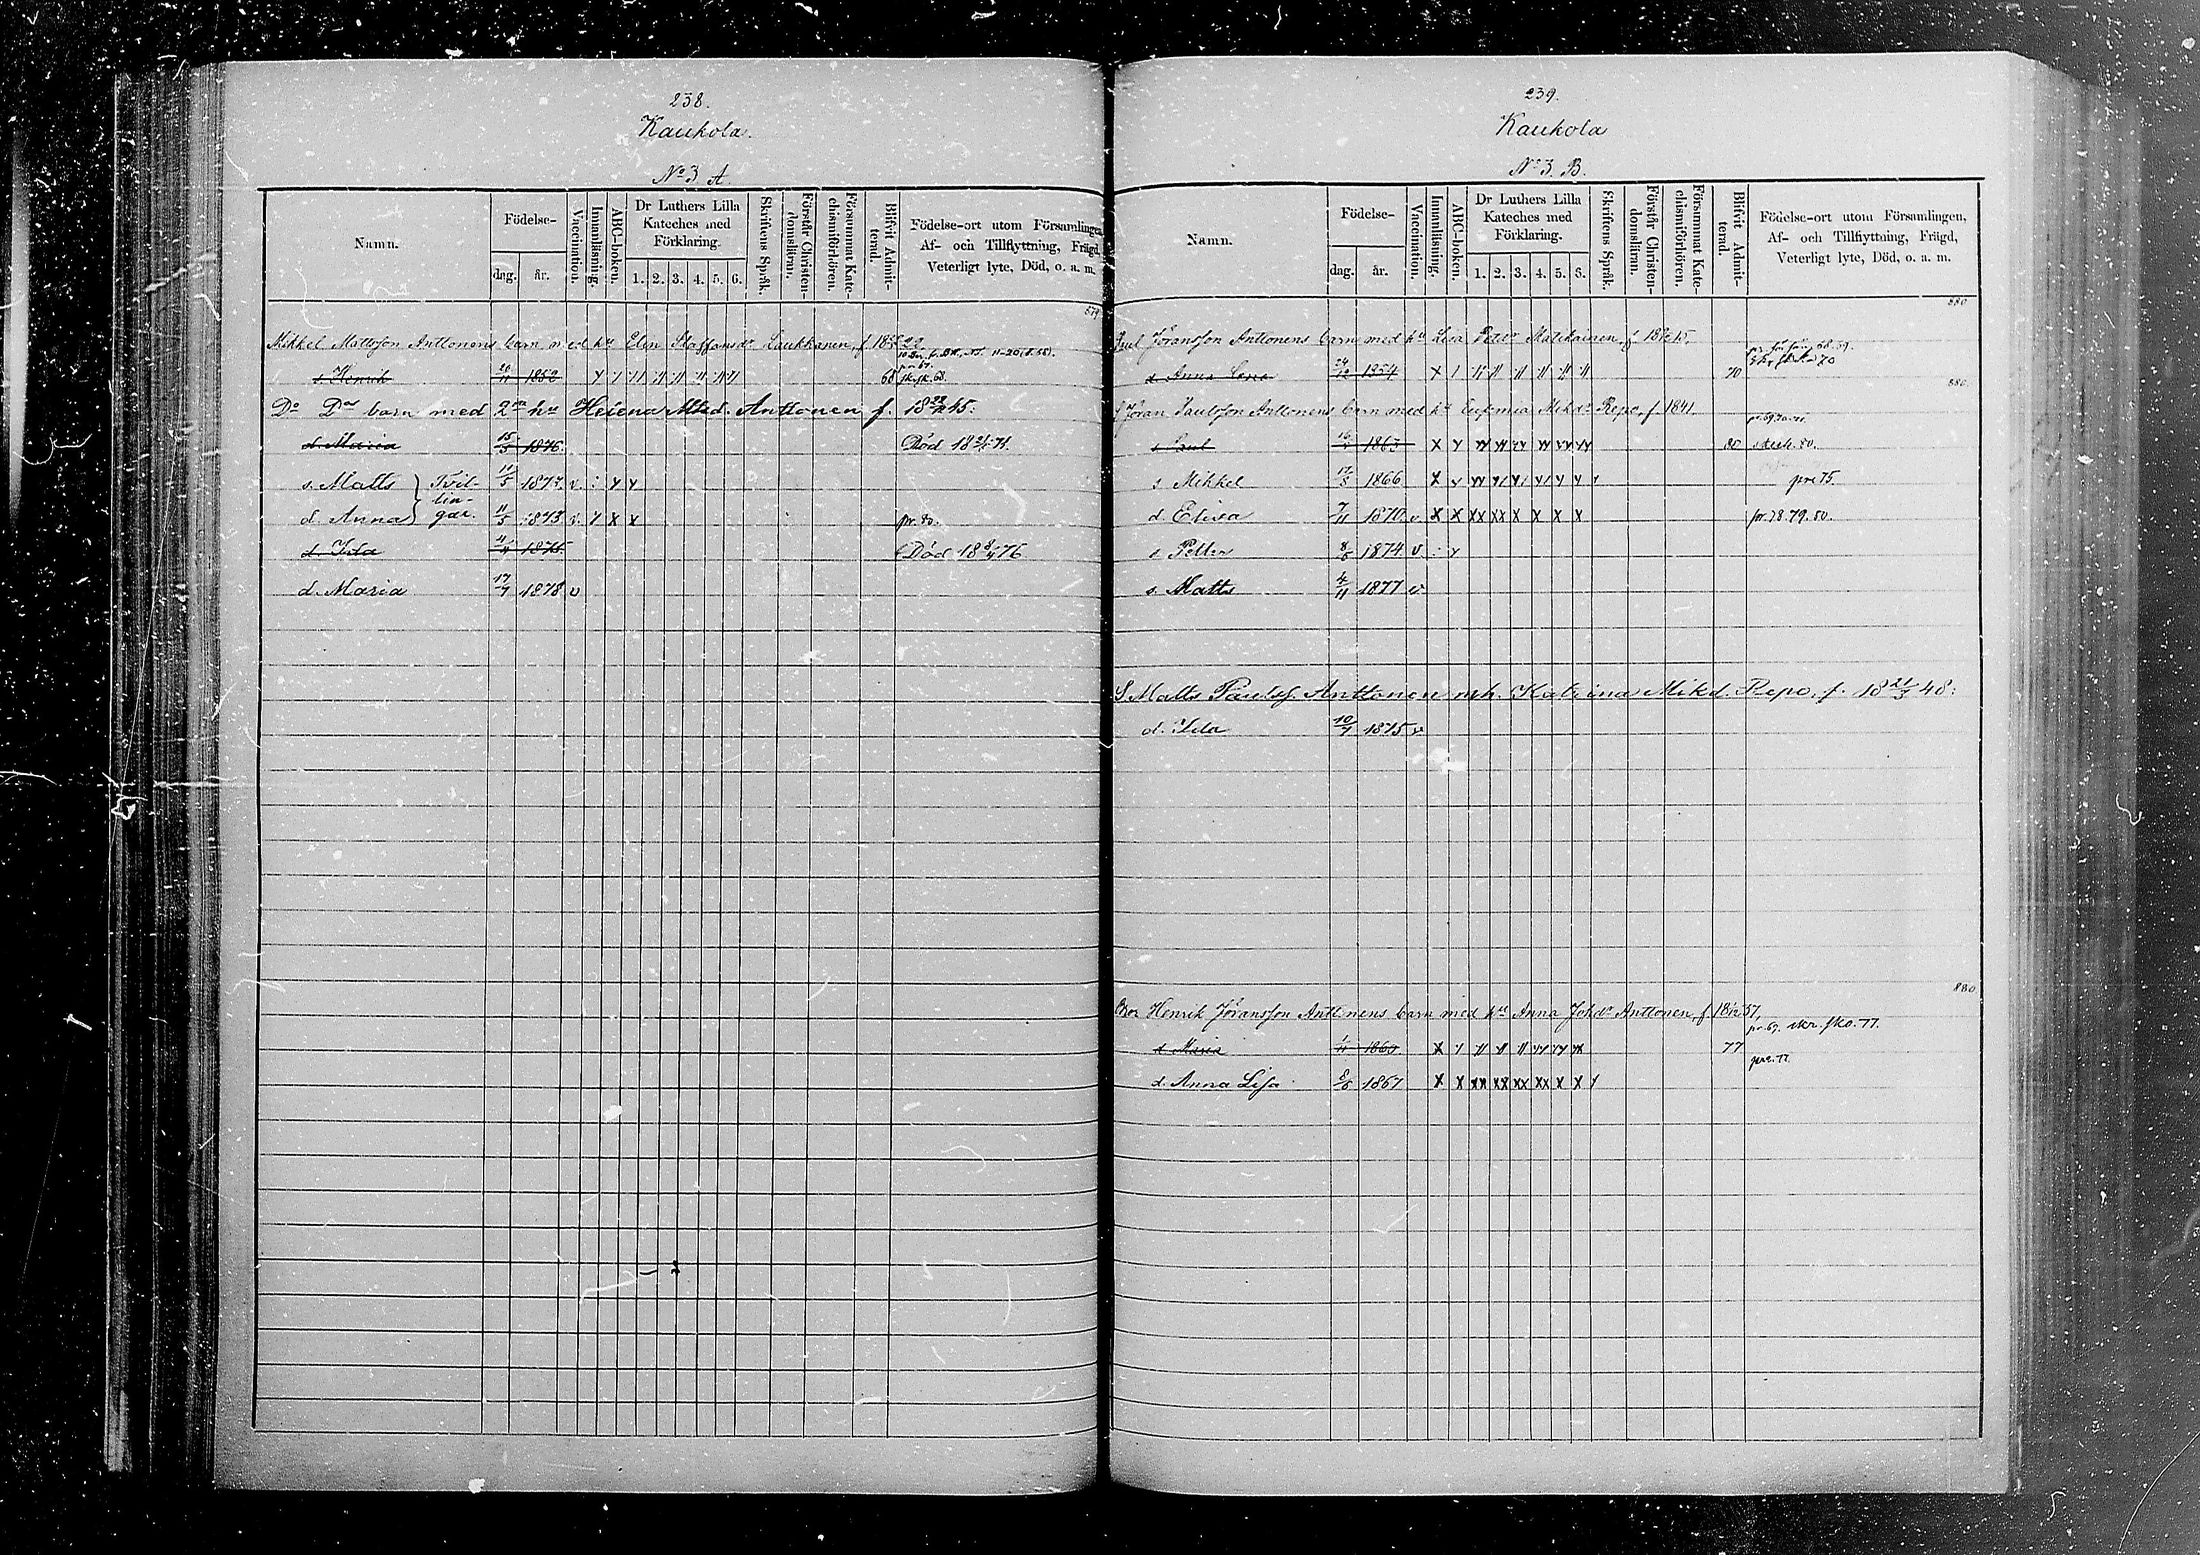 238.
Kaukola.
No 3 A.
Namn.
Födelse-
dag. år.
Vaccination.
Innanläsning.
ABC-boken.
Dr Luthers Lilla
Kateches med
Förklaring.
1. 2. 3. 4. 5. 6.
Skriftens Språk.
Förstår Christen-
domsläran.
Försummat Kate-
chismiförhören.
Blifvit Admit-
terad.
Födelse-ort utom Församlingen,
Af- och Tillflyttning, Frägd,
Veterligt lyte, Död, o. a. m.
879
Mikkel Mattsson Anttonens barn med hu Elin Staffansdr Laukkanen, f.
s. Henrik 20/11 1852 68
Do Dos barn med 2dra hu Helena Mtsd. Anttonen f. 18 45:
d. Maria 15/3 1876. Död 18 71.
s. Matts } Tvil- 11/5 1873. v.
lin-
d. Anna gar. 11/5 1873 v. pr. 80.
d. Ida 1875. Död 18 8/4 76
d. Maria 17/7 1878 v
239.
Kaukola
No 3. B.
Namn.
Födelse-
dag. år.
Vaccination.
Innanläsning.
ABC-boken.
Dr Luthers Lilla
Kateches med
Förklaring.
1. 2. 3. 4. 5. 6.
Skriftens Språk.
Förstår Christen-
domsläran.
Försummat Kate-
chismiförhören.
Blifvit Admit-
terad.
Födelse-ort utom Församlingen,
Af- och Tillflyttning, Frägd,
Veterligt lyte, Död, o. a. m.
880
Paul Jöransson Anttonens barn med hu Lisa Petersdr Matikainen, f.
d. Anna 24/12 1854 70
880.
Jöran Paulsson Anttonens barn med hu Eufemia Mikdr Repo, f. 1841.
s. Paul 1863 80
s Mikkel 17/3 1866 pre 75.
d. Elisa 7/11 1870 v pr. 78. 79. 80.
s Petter 8/6 1874 v
s. Matts 4/11 1877 v
S Matts Paulss. Anttonen mh. Katrina Mikd. Repo, f. 18 21/3 48:
d. Ida 10/7 1875 v
880
Bror Henrik Jöransson Anttonens barn med hu Anna Johdr Anttonen, f. 57,
pr. 69. skr. sko. 77.
d. Maria 1/11 1860 77
pre. 77.
d. Anna Lisa 8/6 1867